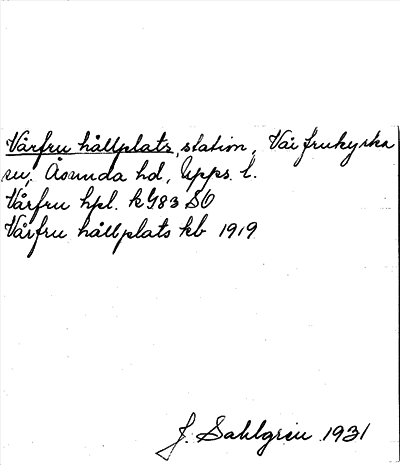 Vårfru hållplats, station, Vårfrukyrka
sn, Åsunda hd, Upps. l.
Vårfru hpl. k G83 SO
Vårfru hållplats kb 1919
J. Sahlgren 1931